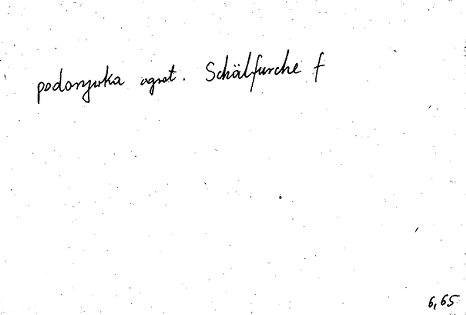 podorywka agrot. Schälfurche f
6,65